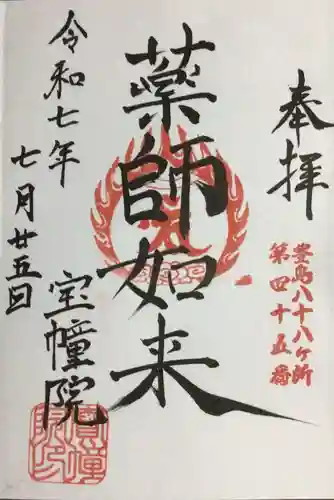 奉拝
豊島八十八ヶ所
第四十五番
薬師如来
令和七年
七月廿五日
宝幢院